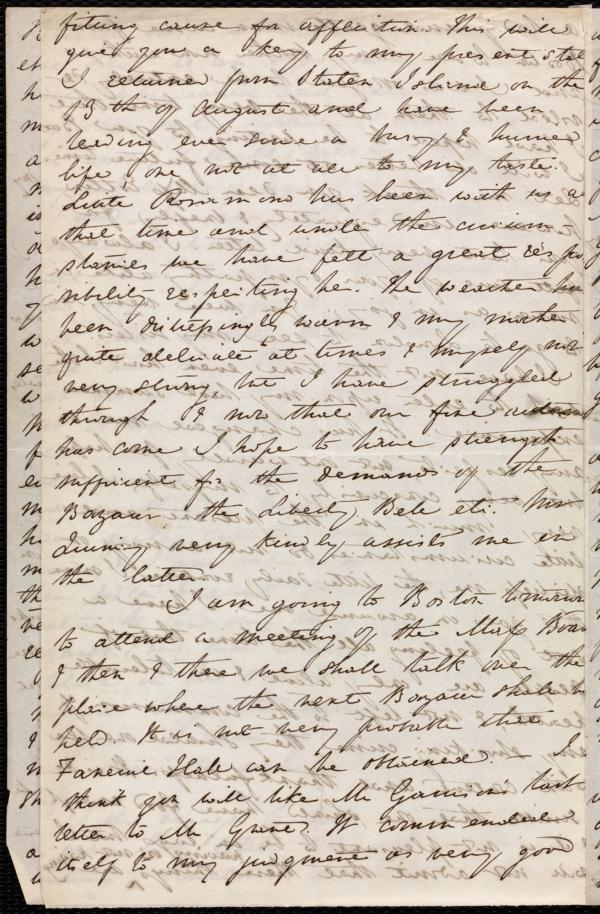 fitting cause for affliction. This will
give you a key to my present state
I returned from Staten Island on the
13th of August and have been
leading ever since a busy & hurried
life one not at all to my taste.
Little Rosamond has been with us al
that time and under the circum
stances we have felt a great respon
sibility respecting her. The weather has
been distressingly warm & my mother
quite delicate at times & myself not
very strong, but I have struggled
through & now that our fine autumn
has come I hope to have strength
sufficient for the demands of the
Bazaar the Liberty Bell etc. Mr
Quincy very kindly assists me in
the latter.
I am going to Boston tomorrow
to attend a meeting of the Mass Board
& then & there we shall talk over the
place where the next Bazaar shall be
held. It is not very probable that
Faneuil Hall can be obtained. I
think you will like Mr Garrison's last
letter to Mr . It commended
itself to my judgment as very good